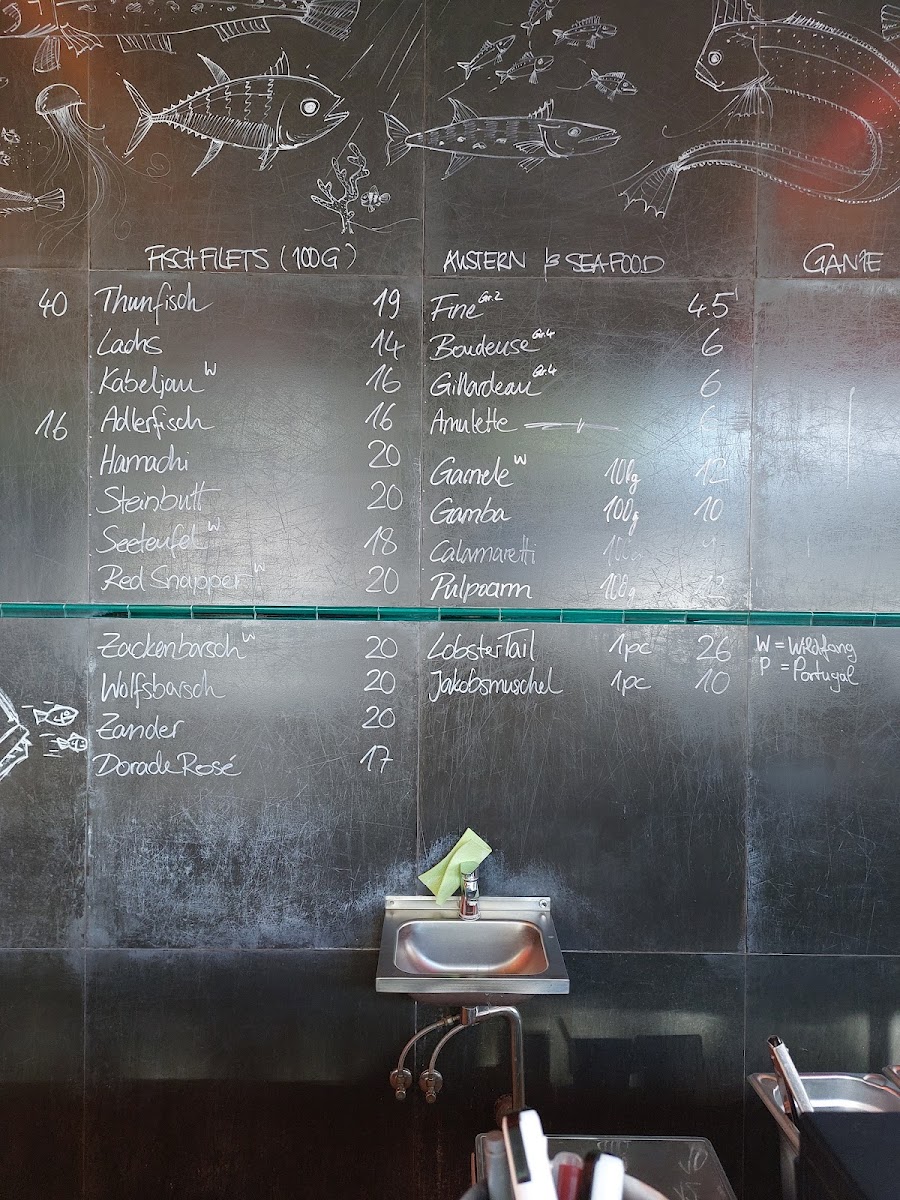 FISCHFILETS (100G)
40
Thunfisch 19
Lachs 14
Kabeljau W 16
16
Adlerfisch 16
Hamachi 20
Steinbutt 20
Seeteufel W 18
Red Snapper W 20
Zackenbarsch W 20
Wolfsbarsch 20
Zander 20
Dorade Rosé 17
AUSTERN & SEAFOOD
Fine Gr.2 4.5
Boudeuse Gr.4 6
Gillardeau Gr.4 6
Amulette 6
Garnele W 100g 12
Gamba 100g 10
Calamaretti 100g 9
Pulpoarm 100g 12
Lobster Tail 1pc 26
Jakobsmuschel 1pc 10
GANZE
W = Wildfang
P = Portugal